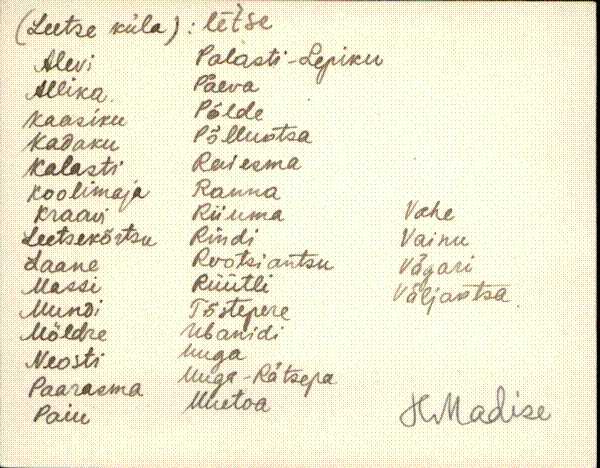 (Leetse küla): lētse
Alevi
Allika
Kaasiku
Kadaku
Kalasti
Koolimaja
Kraavi
Leetsekõrtsu
Laane
Massi
Mundi
Möldre
Neosti
Paarasma
Paiu
Palasti-Lepiku
Päeva
Põlde
Põlluotsa
Reiesma
Ranna
Riiuma
Rindi
Rootsiantsu
Rüütli
Tõstepere
Ubanidi
Uuga
Uuga-Rätsepa
Uuetoa
Vahe
Vainu
Vägari
Väljaotsa
H. Madise